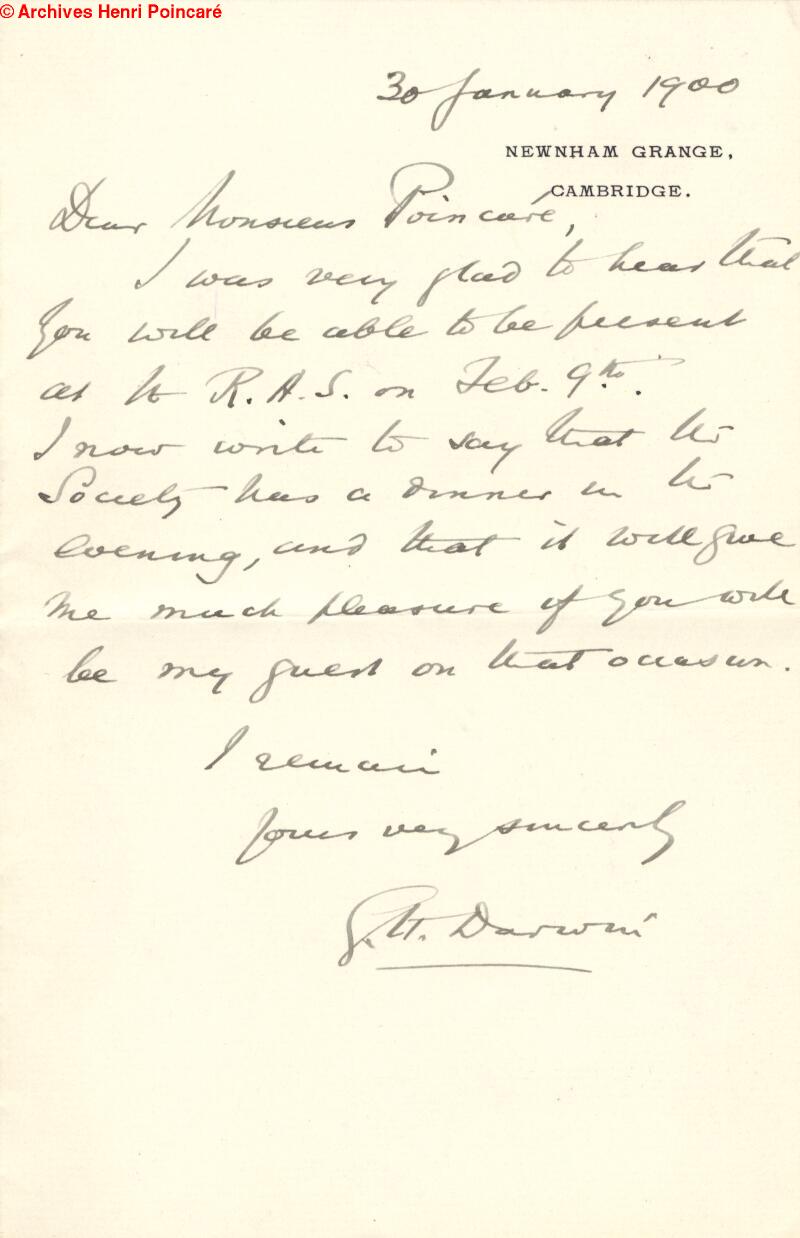 © Archives Henri Poincaré
30 January 1900
NEWNHAM GRANGE,
CAMBRIDGE.
Dear Monsieur Poincaré,
I was very glad to hear that
you will be able to be present
at the R.A.S. on Feb. 9th.
I now write to say that the
Society has a dinner in the
evening, and that it will give
me much pleasure if you will
be my guest on that occasion.
I remain
Yours very sincerely
G.H. Darwin